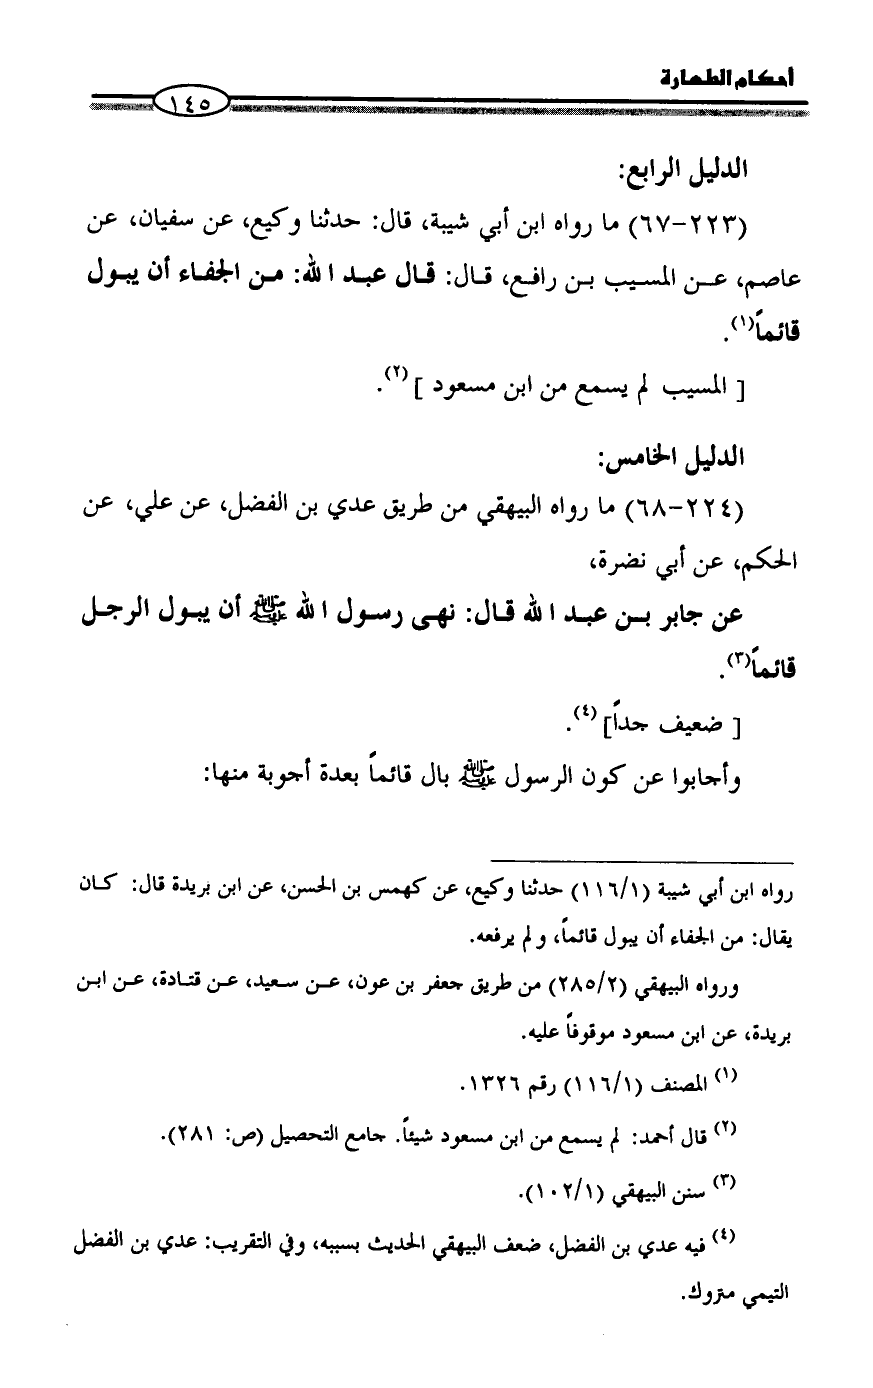 أحكام الطهارة
١٤٥
الدليل الرابع:
(٢٢٣-٦٧) ما رواه ابن أبي شيبة، قال: حدثنا وكيع، عن سفيان، عن
عاصم، عـن المسيب بـن رافع، قـال: قـال عبـد الله: مـن الجفـاء أن يبـول
قائماً(١).
[ المسيب لم يسمع من ابن مسعود ](٢).
الدليل الخامس:
(٢٢٤-٦٨) ما رواه البيهقي من طريق عدي بن الفضل، عن علي، عن
الحكم، عن أبي نضرة،
عن جابر بـن عبـد الله قـال: نهـى رسـول الله ﷺ أن يبـول الرجـل
قائماً(٣).
[ ضعيف جداً](٤).
وأجابوا عن كون الرسول ﷺ بال قائماً بعدة أجوبة منها:
رواه ابن أبي شيبة (١١٦/١) حدثنا وكيع، عن كهمس بن الحسن، عن ابن بريدة قال: كـان
يقال: من الجفاء أن يبول قائماً، ولم يرفعه.
ورواه البيهقي (٢٨٥/٢) من طريق جعفر بن عون، عـن سـعيد، عـن قتـادة، عـن ابـن
بريدة، عن ابن مسعود موقوفاً عليه.
(١) المصنف (١١٦/١) رقم ١٣٢٦.
(٢) قال أحمد: لم يسمع من ابن مسعود شيئاً. جامع التحصيل (ص: ٢٨١).
(٣) سنن البيهقي (١٠٢/١).
(٤) فيه عدي بن الفضل، ضعف البيهقي الحديث بسببه، وفي التقريب: عدي بن الفضل
التيمي متروك.